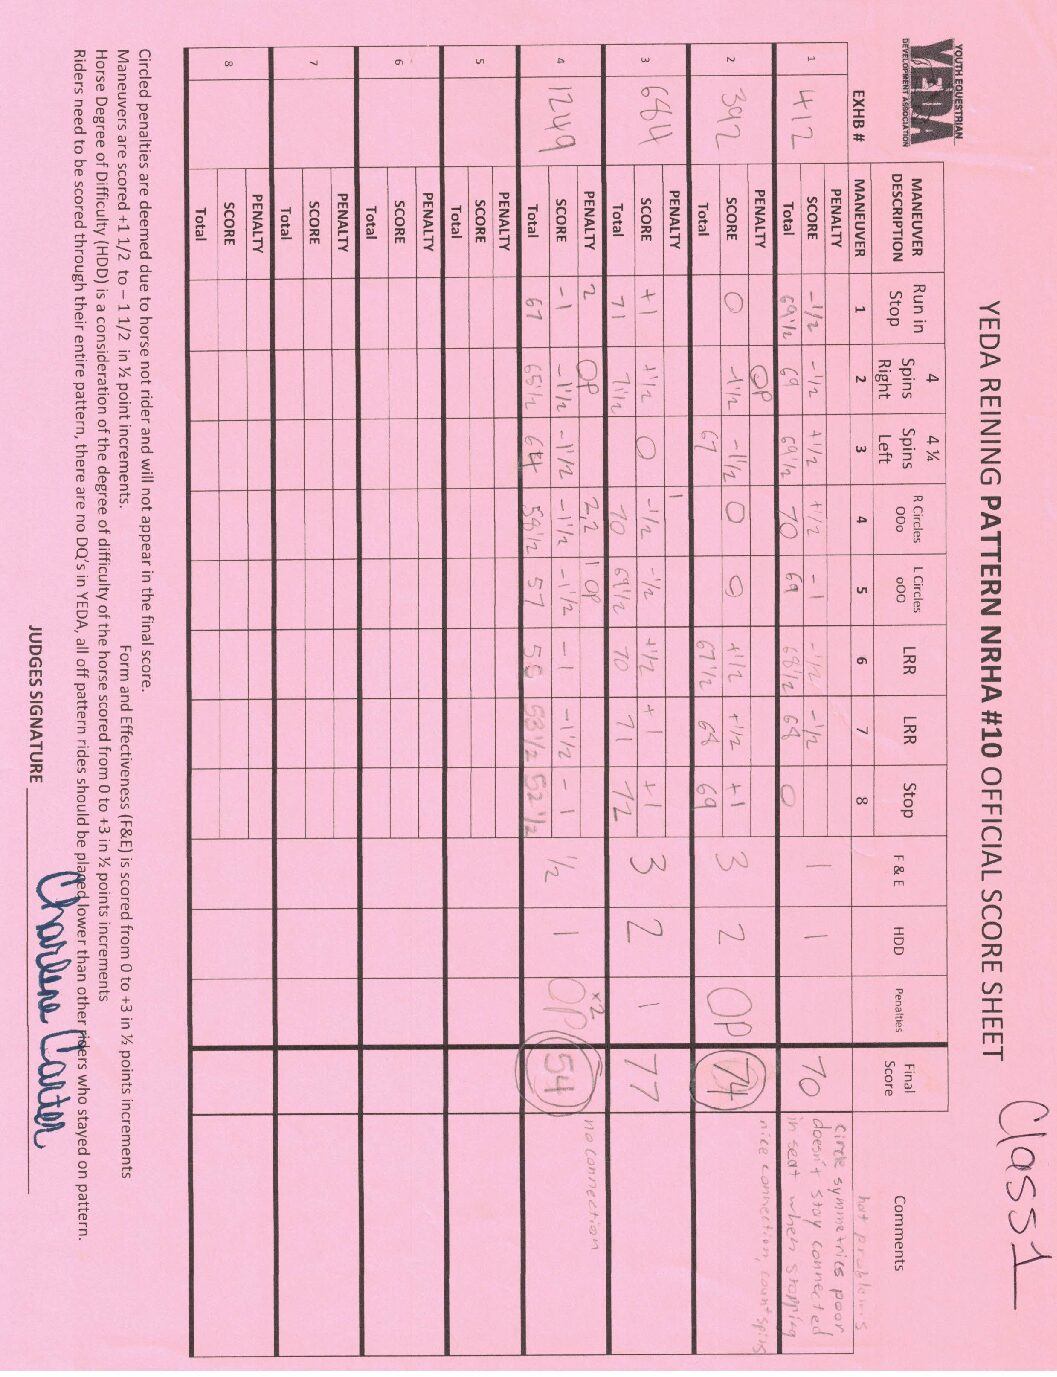 Class 1
YEDA REINING PATTERN NRHA #10 OFFICIAL SCORE SHEET
YOUTH EQUESTRIAN
YEDA
DEVELOPMENT ASSOCIATION
MANEUVER DESCRIPTION Run in Stop 4 Spins Right 4 ¼ Spins Left R Circles OOo L Circles oOO LRR LRR Stop F & E HDD Penalties Final Score Comments
EXHB # MANEUVER 1 2 3 4 5 6 7 8
hat problems
1 412
PENALTY circle symmetries poor
SCORE -1/2 -1/2 +1/2 +1/2 -1 -1/2 -1/2 0 1 1 70 doesn't stay connected
Total 69 1/2 69 69 1/2 70 69 68 1/2 68 in seat when stopping
2 392
PENALTY OP nice connection, count spins
SCORE 0 -1 1/2 -1 1/2 0 0 +1/2 +1/2 +1 3 2 OP 74
Total 67 67 1/2 68 69
3 684
PENALTY 1
SCORE +1 +1/2 0 -1/2 -1/2 +1/2 +1 +1 3 2 1 77
Total 71 71 1/2 70 69 1/2 70 71 72
4 1249
PENALTY 2 OP 2,2 1 OP x2 no connection
SCORE -1 -1 1/2 -1 1/2 -1 1/2 -1 1/2 -1 -1 1/2 -1 1/2 1 OP 54
Total 67 65 1/2 64 58 1/2 57 55 53 1/2 52 1/2
5
PENALTY
SCORE
Total
6
PENALTY
SCORE
Total
7
PENALTY
SCORE
Total
8
PENALTY
SCORE
Total
Circled penalties are deemed due to horse not rider and will not appear in the final score.
Maneuvers are scored +1 1/2 to – 1 1/2 in ½ point increments. Form and Effectiveness (F&E) is scored from 0 to +3 in ½ points increments
Horse Degree of Difficulty (HDD) is a consideration of the degree of difficulty of the horse scored from 0 to +3 in ½ points increments
Riders need to be scored through their entire pattern, there are no DQ's in YEDA, all off pattern rides should be placed lower than other riders who stayed on pattern.
JUDGES SIGNATURE Charlene Carter